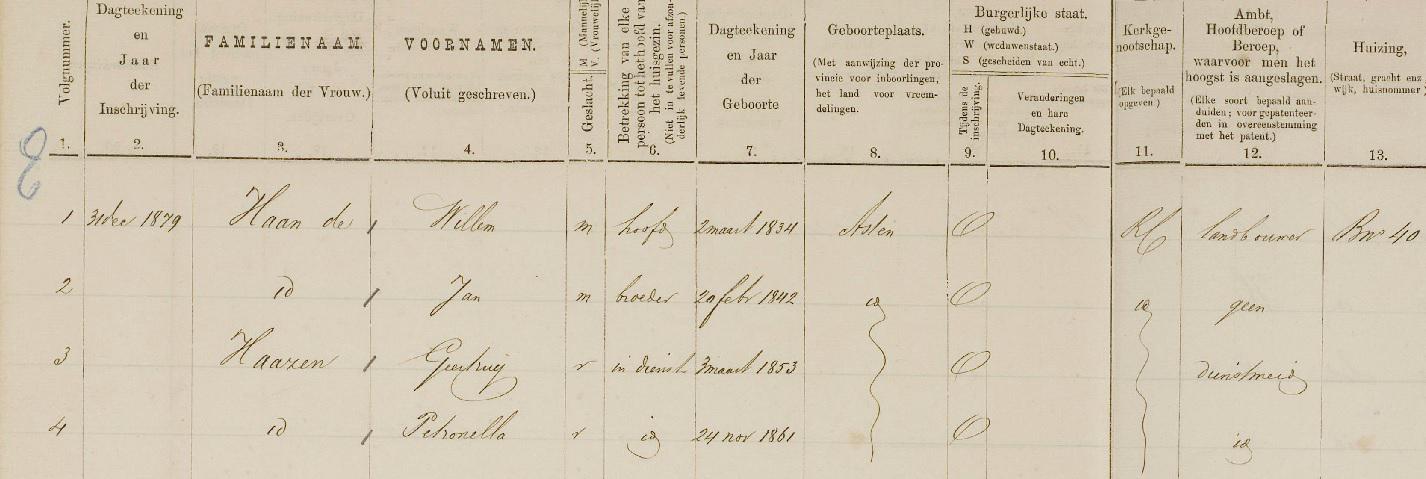 Volgnummer.
1.
Dagteekening
en
Jaar
der
Inschrijving.
2.
FAMILIENAAM.
(Familienaam der Vrouw.)
3.
VOORNAMEN.
(Voluit geschreven.)
4.
Geslacht. M (Mannelijk)
V. (Vrouwelijk)
5.
Betrekking van elke
persoon tot het hoofd van
het huisgezin.
(Niet in te vullen voor afzon-
derlijk levende personen.)
6.
Dagteekening
en Jaar
der
Geboorte
7.
Geboorteplaats.
(Met aanwijzing der pro-
vincie voor inboorlingen,
het land voor vreem-
delingen.
8.
Burgerlijke staat.
H (gehuwd.)
W (weduwenstaat.)
S (gescheiden van echt.)
Tijdens de
inschrijving.
9.
Veranderingen
en hare
Dagteekening.
10.
Kerkge-
nootschap.
(Elk bepaald
opgeven)
11.
Ambt,
Hoofdberoep of
Beroep,
waarvoor men het
hoogst is aangeslagen.
(Elke soort bepaald aan-
duiden; voor gepatenteer-
den in overeenstemming
met het patent.)
12.
Huizing,
(Straat, gracht enz
wijk, huisnommer)
13.
8
1 31 dec 1879 Haan de Willem m hoofd 2 maart 1834 Asten O RC landbouwer B no 40
2 id Jan m broeder 20 febr 1842 id O id geen
3 Haazen Geertruij v in dienst 3 maart 1853 O dienstmeid
4 id Petronella v id 24 nov 1861 O id